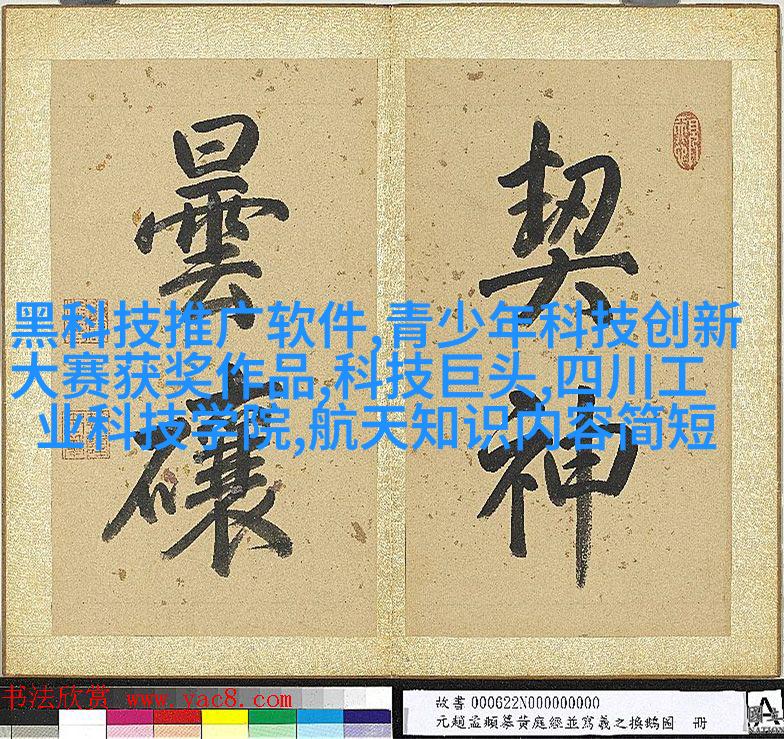 契神
曇
黑科技推广软件,青少年科技创新
大赛获奖作品,科技巨头,四川工
业科技学院,航天知识内容简短
书法欣赏 www.yac8.com
故書000622N000000000
元趙孟頫摹黃庭經並寫羲之換鵝圖 冊